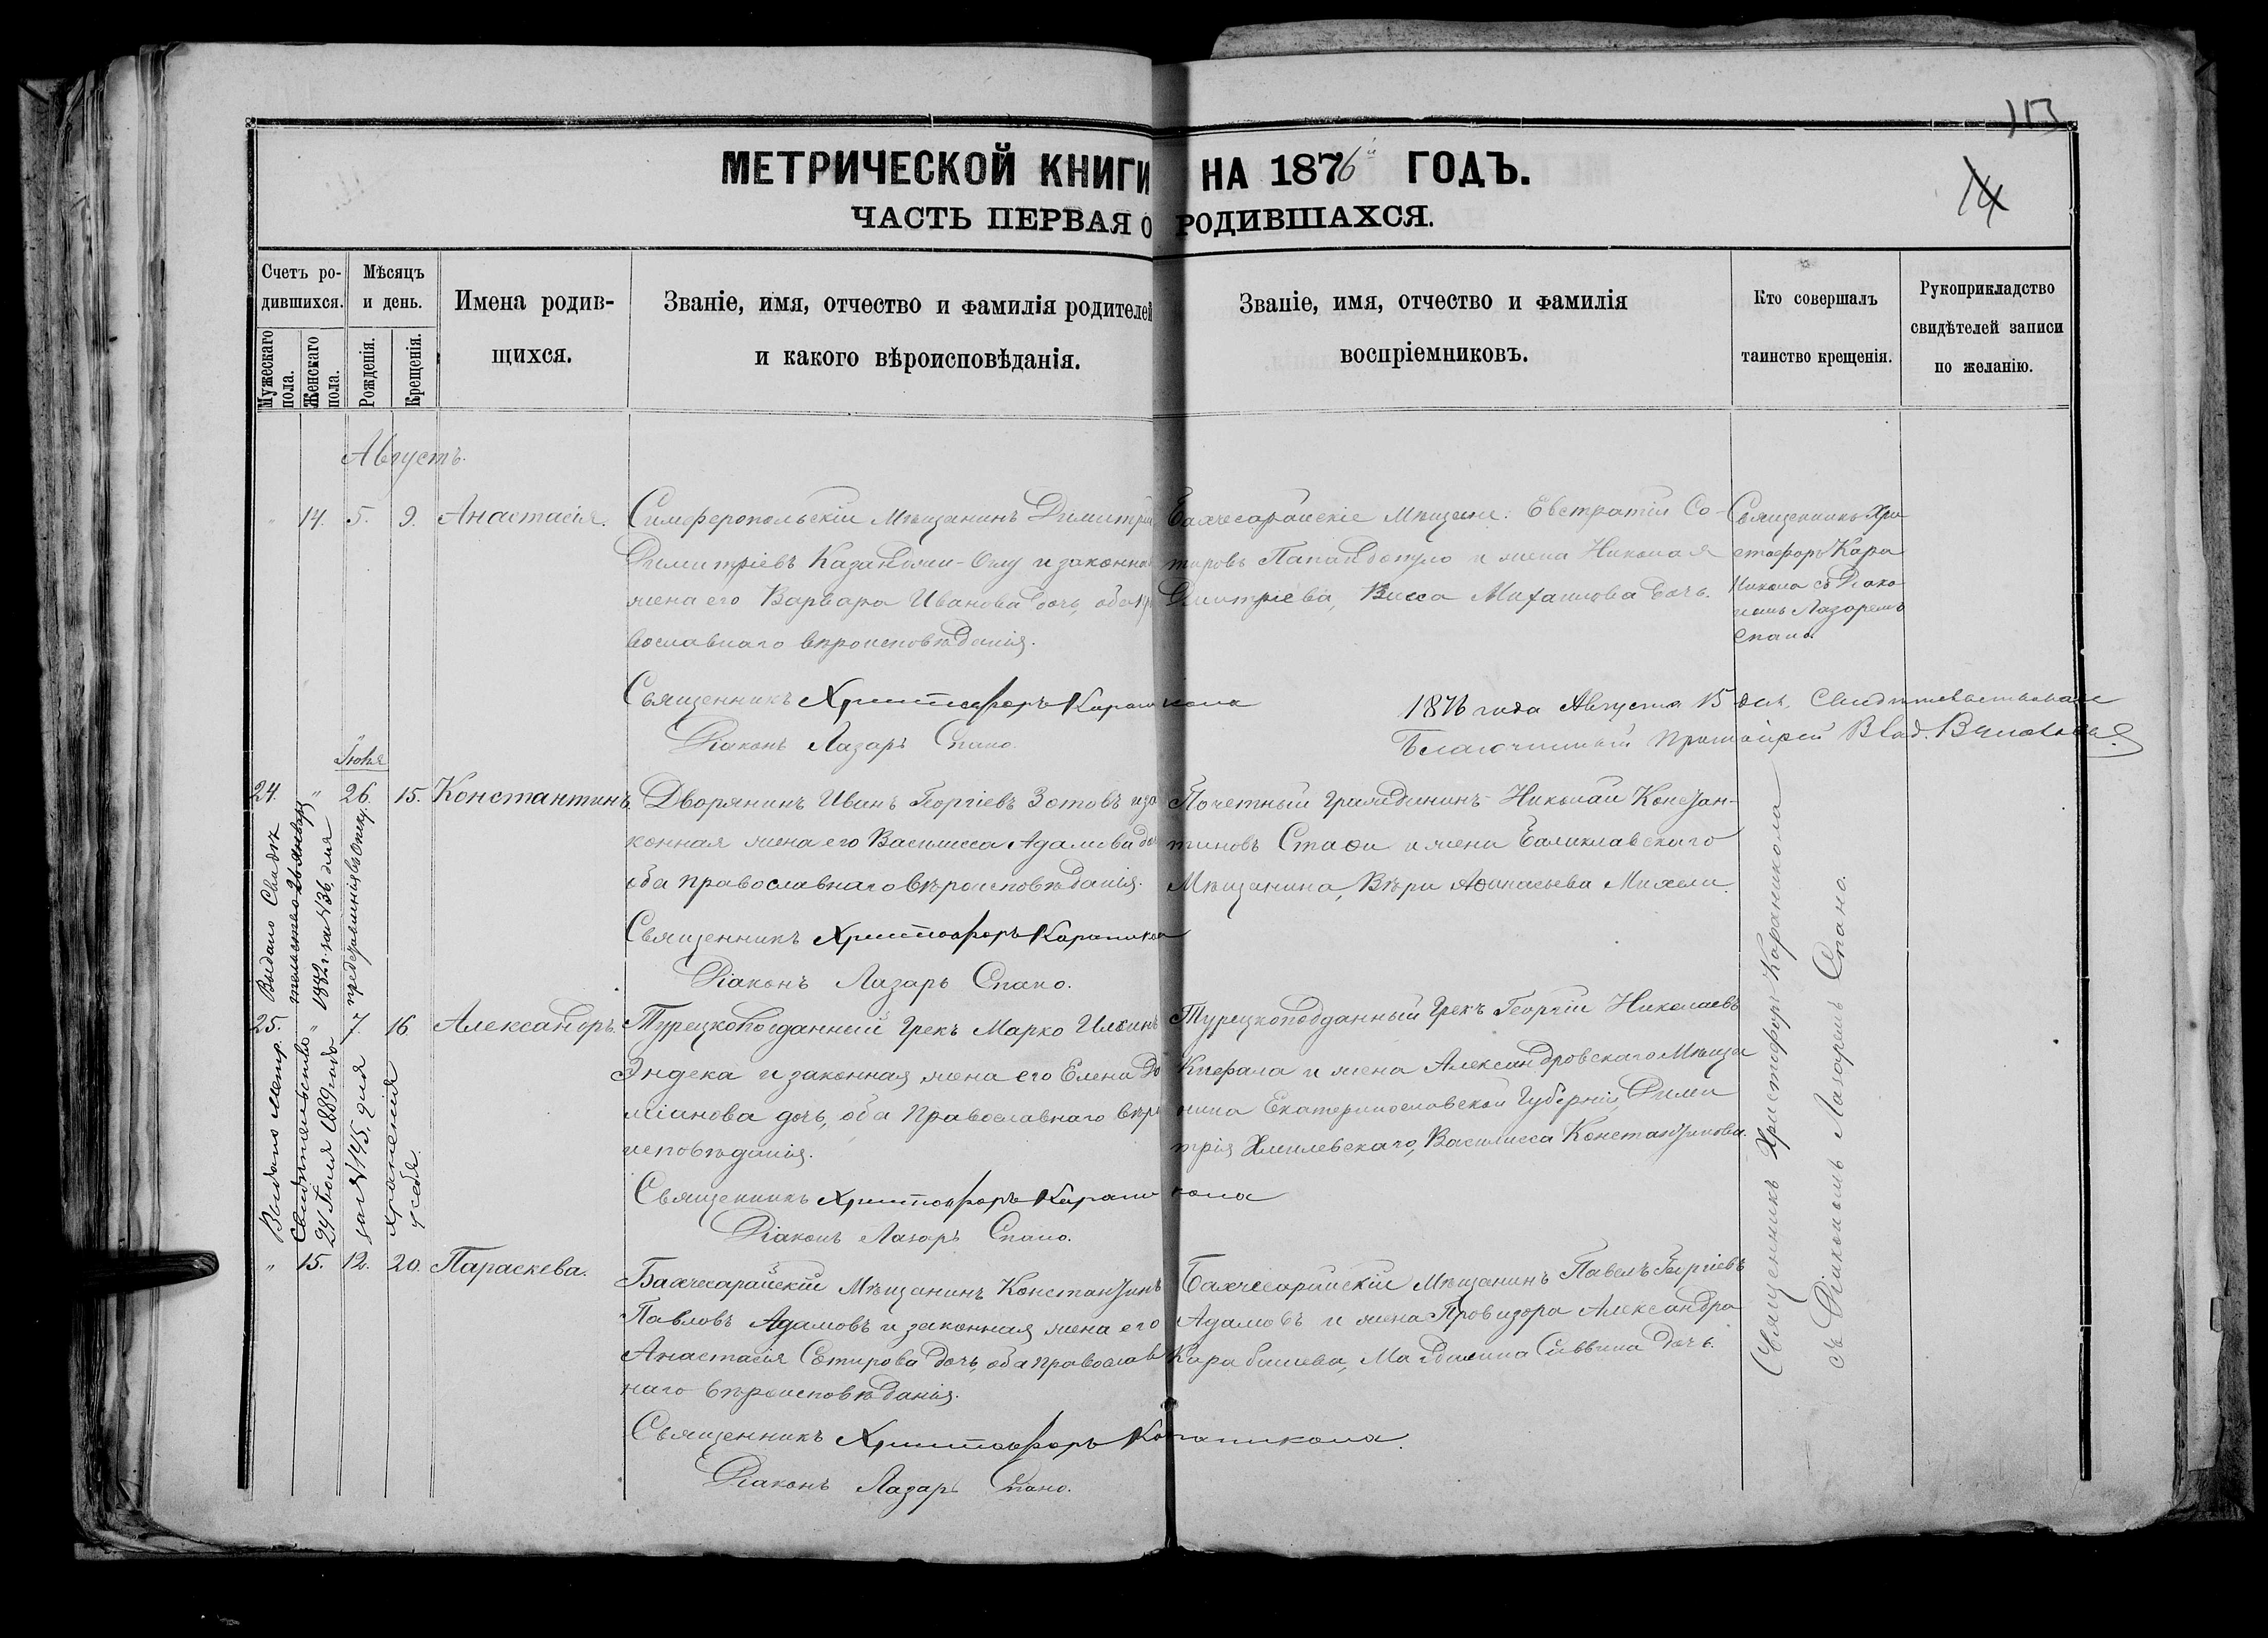 113
14
МЕТРИЧЕСКОЙ КНИГИ НА 1876й ГОДЪ.
ЧАСТЬ ПЕРВАЯ О РОДИВШАХСЯ.
Счетъ ро-
дившихся.
Мужескаго
пола.
Женскаго
пола.
Мѣсяцъ
и день.
Рожденія.
Крещенія.
Имена родив-
щихся.
Званіе, имя, отчество и фамилія родителей
и какого вѣроисповѣданія.
Званіе, имя, отчество и фамилія
воспріемниковъ.
Кто совершалъ
таинство крещенія.
Рукоприкладство
свидѣтелей записи
по желанію.
Августъ.
" 14. 5. 9. Анастасія.
Симферопольскій Мѣщанинъ Димитрій
Димитріевъ Казанджи-Оглу и законная
жена его Варвара Иванова дочь, оба пра
вославнаго вѣроисповѣданія.
Священникъ Христофоръ Караникола
Діаконъ Лазарь Спано.
Бахчесарайскіе Мѣщане: Евстратій Со-
тировъ и жена Николая
Димитріева, Васса Михаилова дочь.
Священникъ Хри
стофоръ Кара
никола съ Діако
номъ Лазаремъ
Спано.
1876 года Августа 15 дня. Свидѣтельствовалъ
Благочинный Протоіерей Влад.
Іюля
24. " 26. 15. Константинъ.
Дворянинъ Иванъ Георгіевъ Зотовъ и за
конная жена его Василисса Адамова дочь
оба православнаго вѣроисповѣданія.
Священникъ Христофоръ Караникола
Діаконъ Лазарь Спано.
Почетный Гражданинъ Николай Констан-
тиновъ и жена Балаклавскаго
Мѣщанина, Вѣра Аѳанасьева
Выдано Свидѣ
тельство 26 января
1882 г. за № 36 для
представленія въ Опеку.
25. " 7. 16. Александръ.
Турецкоподданный Грекъ Марко
Эндека и законная жена его Елена До
міанова дочь, оба Православнаго вѣро
исповѣданія.
Священникъ Христофоръ Караникола
Діаконъ Лазарь Спано.
Турецкоподданный Грекъ Георгій Николаевъ
Кефала и жена Александровскаго Мѣща
нина Екатеринославской Губерніи, Дими
трія Хмилевскаго, Василисса Константинова.
Выдано метр.
свидѣтельство
24 Іюля 1889 года
за № 145, для
храненія
у себя.
" 15. 12. 20. Параскева.
Бахчесарайскій Мѣщанинъ Константинъ
Павловъ Адамовъ и законная жена его
Анастасія Сотирова дочь, оба православ
наго вѣроисповѣданія.
Священникъ Христофоръ Караникола.
Діаконъ Лазарь Спано.
Бахчесарайскій Мѣщанинъ Павелъ Георгіевъ
Адамовъ и жена Провизора Александра
Карабашева, Магдалина Саввина дочь.
Священникъ Христофоръ Караникола
съ Діакономъ Лазаремъ Спано.